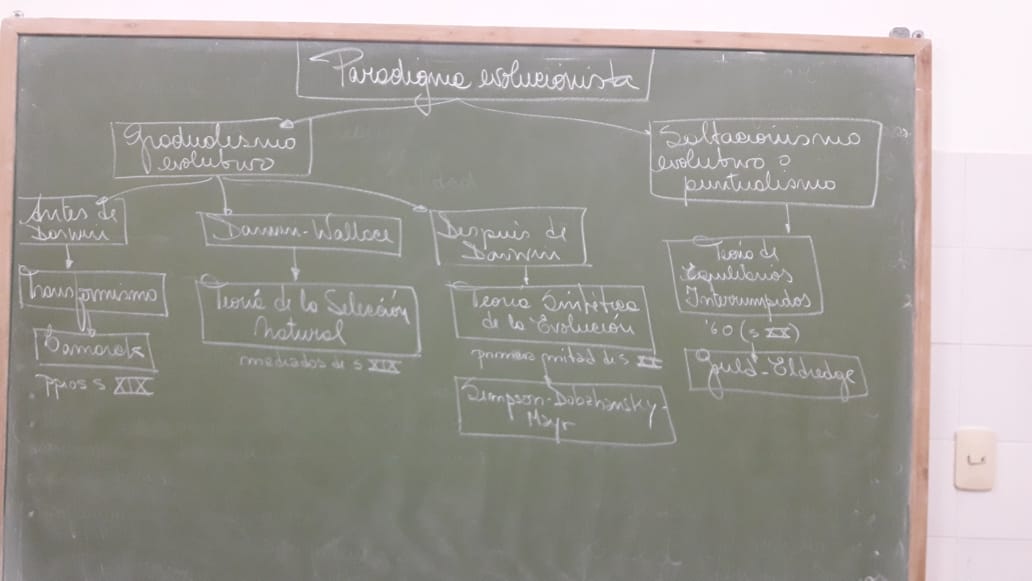 Paradigma evolucionista
Gradualismo
evolutivo
Saltacionismo
evolutivo o
puntualismo
Antes de
Darwin
Darwin-Wallace
Después de
Darwin
Transformismo
Teoría de la Selección
Natural
Teoría Sintética
de la Evolución
Teoría de
Equilibrios
Interrumpidos
Lamarck
ppios s XIX
mediados de s XIX
primera mitad de s XX
'60 (s XX)
Simpson-Dobzhansky-
Mayr
Gould-Eldredge